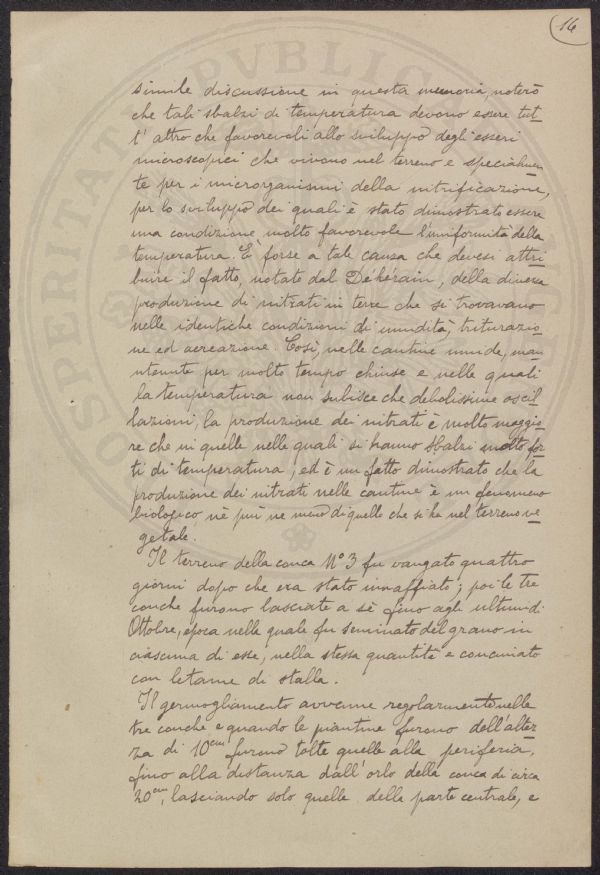 16
simile discussione in questa memoria, noterò
che tali sbalzi di temperatura devono essere tut
t'altro che favorevoli allo sviluppo degli esseri
microscopici che vivono nel terreno e specialmen
te per i microrganismi della nitrificazione,
per lo sviluppo dei quali è stato dimostrato essere
una condizione molto favorevole l'uniformità della
temperatura. È forse a tale causa che devesi attri
buire il fatto, notato dal Déhérain, della diversa
produzione di nitrati in terre che si trovavano
nelle identiche condizioni di umidità, triturazio
ne ed aereazione. Così, nelle cantine umide, man
tenute per molto tempo chiuse e nelle quali
la temperatura non subisce che debolissime oscil
lazioni, la produzione dei nitrati è molto maggio
re che in quelle nelle quali si hanno sbalzi molto for
ti di temperatura, ed è un fatto dimostrato che la
produzione dei nitrati nelle cantine è un fenomeno
biologico nè più ne meno di quello che si ha nel terreno ve
getale.
Il terreno della conca Nº 3 fu vangato quattro
giorni dopo che era stato innaffiato; poi le tre
conche furono lasciate a sè fino agli ultimi di
Ottobre, epoca nella quale fu seminato del grano in
ciascuna di esse, nella stessa quantità e concimato
con letame di stalla.
Il germogliamento avvenne regolarmente nelle
tre conche e quando le piantine furono dell'altez
za di 10cm furono tolte quelle alla periferia,
fino alla distanza dall'orlo della conca di circa
20cm, lasciando solo quelle della parte centrale, e
PROSPERITATI PVBLICAE